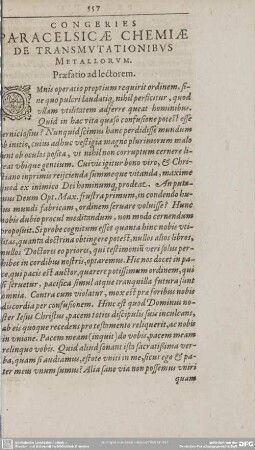 557
CONGERIES
PARACELSICÆ CHEMIÆ
DE TRANSMVTATIONIBVS
METALLORVM.
Præfatio ad lectorem.
OMnis operatio proprium requirit ordinem, si-
ne quo pulcri laudatiq; nihil perficitur, quod
vllam vtilitatem adferre queat hominibus.
Quid in hac vita quæso confusione potest esse
perniciosius? Nunquid scimus hanc perdidisse mundum
ab initio, cuius adhuc vestigia magno plurimorum malo
ob oculos posita, vt nihil non corruptum cernere li-
ceat vbique gentium. Cuivis igitur bono viro, & Chri-
stiano inprimis reijcienda summeque vitanda, maxime
quod ex inimico Dei hominumq; prodeat. An puta-
mus Deum Opt. Max. frustra primum, in condendo hu-
ius mundi fabricam, ordinem seruare voluisse? Hunc
nobis dubio procul meditandum, non modo cernendum
proposuit. Si probe cognitum esset quanta hinc nobis vti-
litas, quanta doctrina obtingere potest, nullos alios libros,
nullos Doctores eo priores, qui testimonij veri solus per-
hibet in cordibus nostris, optaremus. Hic nos docet in pa-
ce, qui pacis est auctor, quærere potissimum ordinem, qui
si seruetur, pacifica simul atque tranquilla futura sunt
omnia. Contra cum violatur, mox est præ foribus nobis
discordia per confusionem. Hinc est quod Dominus no-
ster Iesus Christus, pacem toties discipulis suis inculcans,
ab eis quoque recedens pro testamento reliquerit, ac nobis
in vnione. Pacem meam (inquit) do vobis, pacem meam
relinquo vobis. Quid aliud sonant ista sacratissima ver-
ba, quam si audiamus, estote vniti in me, sicut ego & pa-
ter meus vnum sumus? Alia sane via non possemus vniri
quam